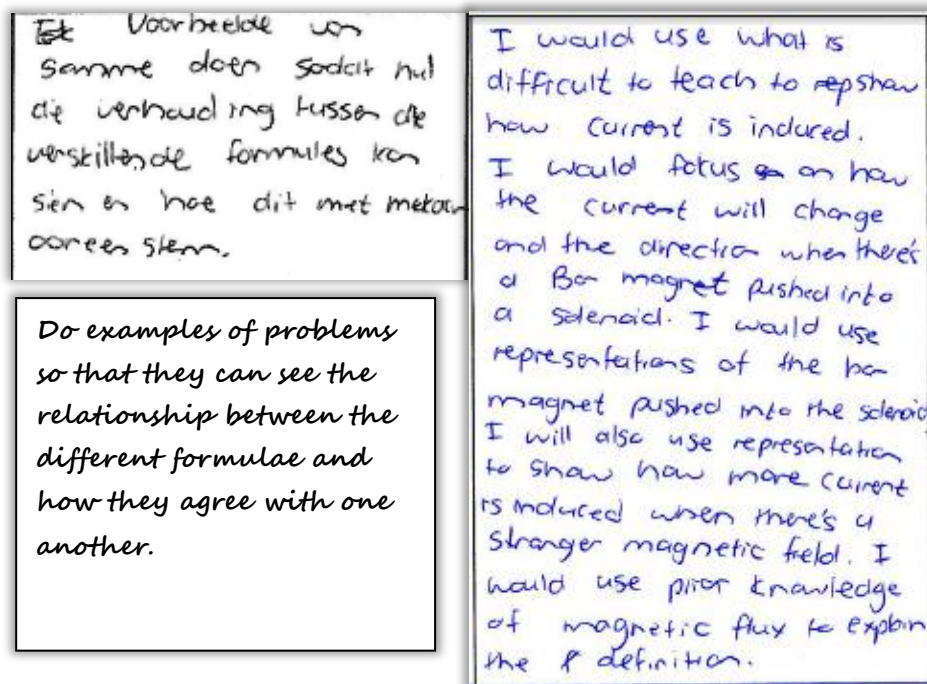 Voorbeelde van
somme doen sodat hul
die verhouding tussen die
verskillende formules kan
sien en hoe dit met mekaar
ooreen stem.
Do examples of problems
so that they can see the
relationship between the
different formulae and
how they agree with one
another.
I would use what is
difficult to teach to show
how current is induced.
I would fokus on how
the current will change
and the direction when there's
a Bar magnet pushed into
a solenoid. I would use
representations of the bar
magnet pushed into the solenoid
I will also use representation
to show how more current
is induced when there's a
stronger magnetic field. I
would use prior knowledge
of magnetic flux to explain
the definition.